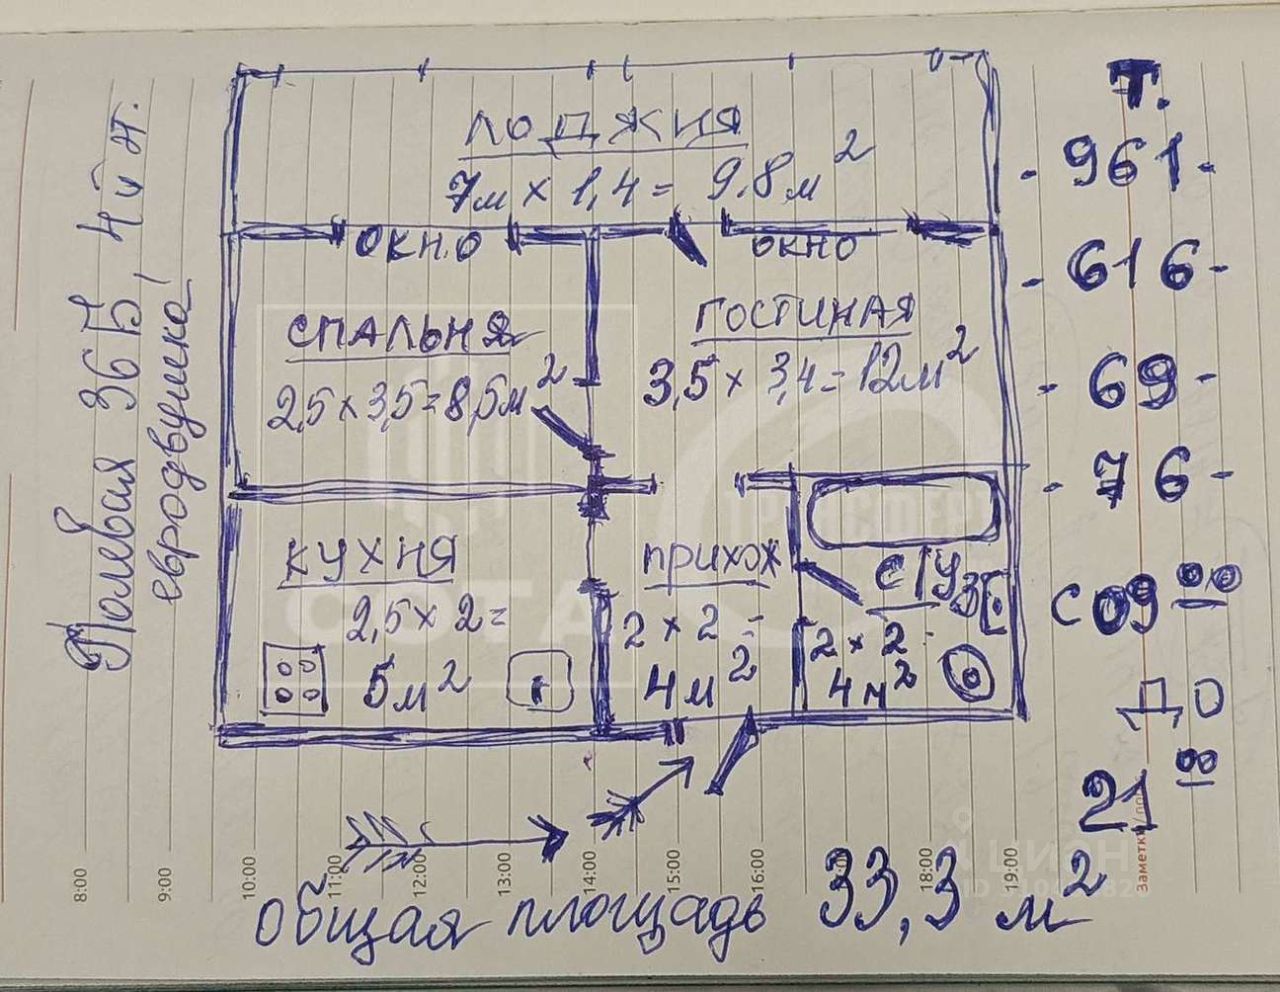 Полевая 36Б, 4й эт.
евродвушка!
ЛОДЖИЯ
7м x 1,4 = 9.8м²
ОКНО
ОКНО
СПАЛЬНЯ
2,5 x 3,5 = 8,5м²
ГОСТИНАЯ
3,5 x 3,4 = 12м²
КУХНЯ
2,5 x 2 =
5м²
ПРИХОЖ
2 x 2 =
4м²
С/УЗ
2 x 2 =
4м²
Т.
- 961 -
- 616 -
- 69 -
- 76 -
С 09 00
ДО
21 00
8:00
9:00
10:00
11:00
12:00
13:00
14:00
15:00
16:00
18:00
19:00
Заметки
общая площадь 33,3 м²
СОТА
ЭКСПЕРТ
ЦИАН